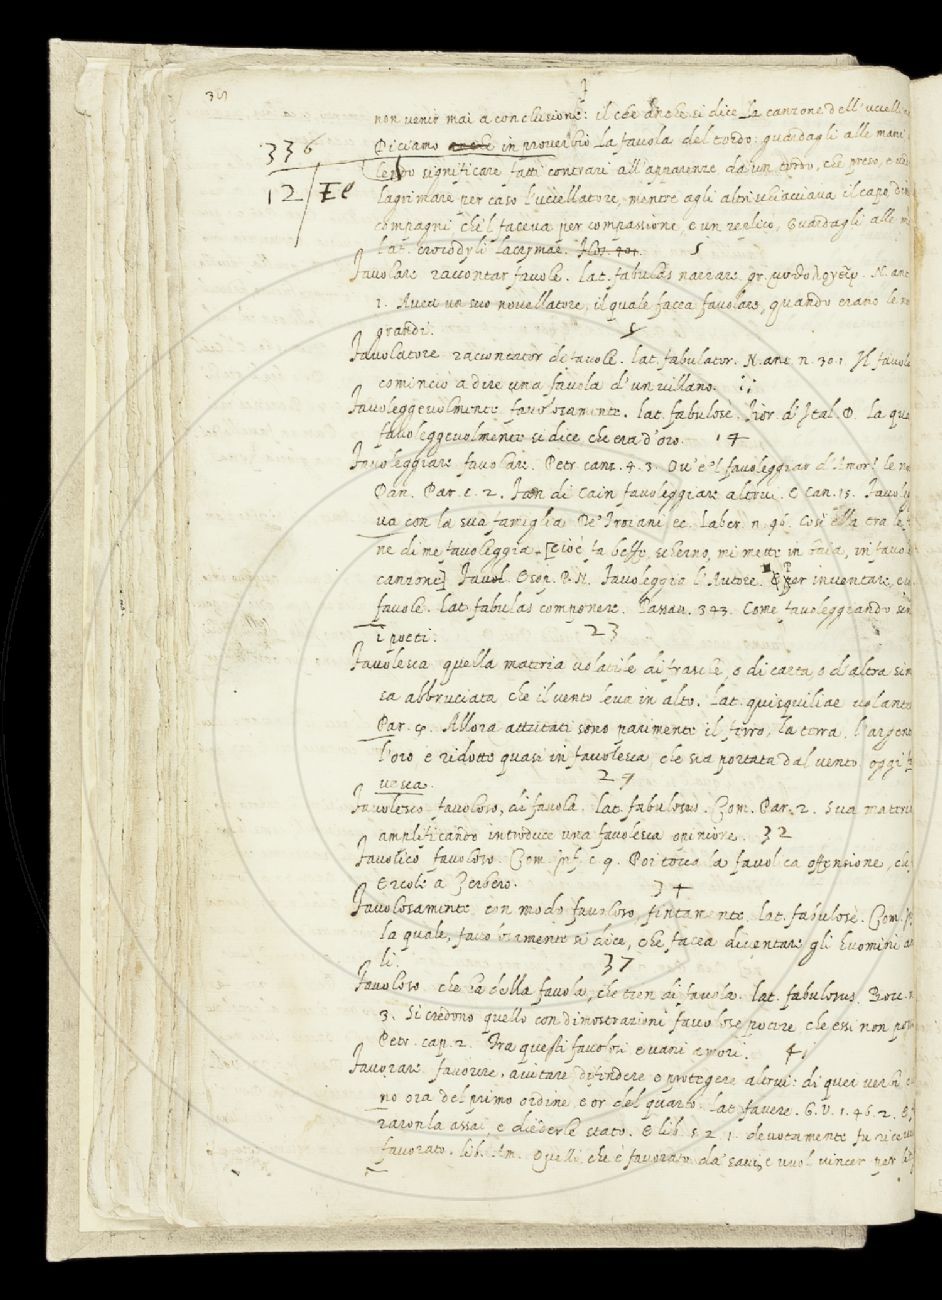 non venir mai a conclusione: il che anche si dice La canzone dell'uccell
Diciamo anche in proverbio La favola del tordo: guardagli alle mani
336
lendo significare fatti contrari all'apparenze da un tordo, che preso, e
12 / El
lagrimare per caso l'uccellatore, mentre agli altri schiacciava il capo, d
compagni ch'l faceva per compassione, e un replicò, Guardagli alle m
lat. crocodyli lacrymae.
5
Favolare raccontar favole. lat. fabulas narrare gr. N. ant
1. Avea un suo novellatore, il quale facea favolare, quando erano le no
grandi.
Favolatore raccontator di favole. lat. fabulator. N. ant. n. 30. 1 Il favola
cominciò a dire una favola d'un villano.
Favoleggevolmente favolosamente. lat. fabulose. Fior. d'Ital. D. La qua
favoleggevolmente si dice che era d'oro. 14
Favoleggiare favolare. Petr. canz. 4. 3. Ov'è'l favoleggiar d'Amor le no
Dan. Par. c. 2. di Cain favoleggiare altrui. E Can. 15. Favoleg
va con la sua famiglia De' Troiani ec. Laber. n. 96. Così ella tra le
ne di me favoleggia. [cioè fa beffe, scherno, mi mette in baia, in favo
canzone] Favol. Esop. P. N. Favoleggia l'Autore. per inventare,
favole. lat. fabulas componere. Passav. 343. Come favoleggiando
i poeti. 23
Favolesca quella materia volatile di frasche, o di carta, o d'altra sim
sa abbruciata che il vento leva in alto. lat. quisquiliae volant
Par. 9. Allora attutati sono parimente il ferro, la terra, l'argen
l'oro e ridotte quasi in favolesca, che sia portata dal vento oggi
vesca. 27
Favolesco favoloso, di favola. lat. fabulosus. Com. Par. 2. Sua materi
amplificando introduce una favolesca opinione. 32
Favolico favoloso. Com. Inf. c 9. Poi tocca la favolica offensione, ch
Ercole a Zerbero. 34
Favolosamente con modo favoloso, fintamente lat. fabulose. Com.
la quale, favolosamente si dice, che facea diventare gli huomini
li. 37
Favoloso che ha della favola, che tien di favola. lat. fabulosus. Bocc.
3. Si credono quello con dimostrazioni favolose pocere che essi non
Petr. cap. 2. Fra questi favolosi e vani amori. 41
Favorare favorire, aiutare difendere o protegere altrui: di quei verbi
no ora del primo ordine, e or del quarto. lat. favere. G. V. 1. 46. 2.
raronla assai, e diederle stato. E lib. 5. 2. 1. devotamente fu ricevu
favorato. lib. Quelli che è favorato da' savi, e vuol vincer per